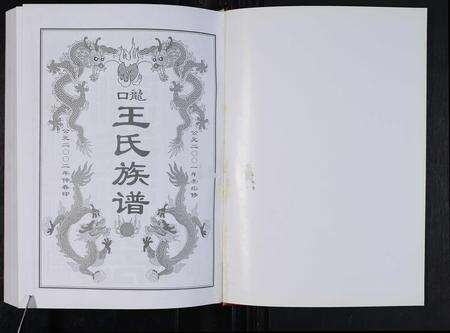 龍口
王氏族谱
公元二〇〇一年冬修
公元二〇〇二年仲春印